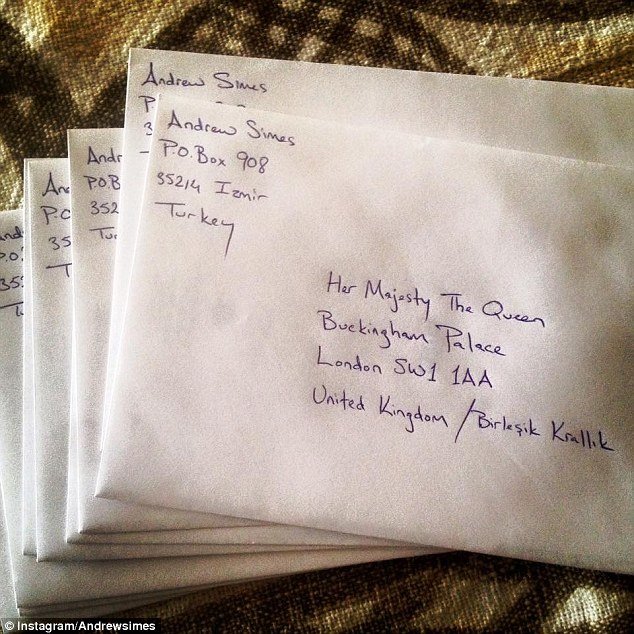 Andrew Simes
P.
3
Andrew Simes
P.O. Box 908
35214 Izmir
Turkey
Her Majesty The Queen
Buckingham Palace
London SW1 1AA
United Kingdom / Birleşik Krallık
Andr
P.O.B
352
Tu
An
P.O
35
T
And
P.O.
353
T
© Instagram/Andrewsimes